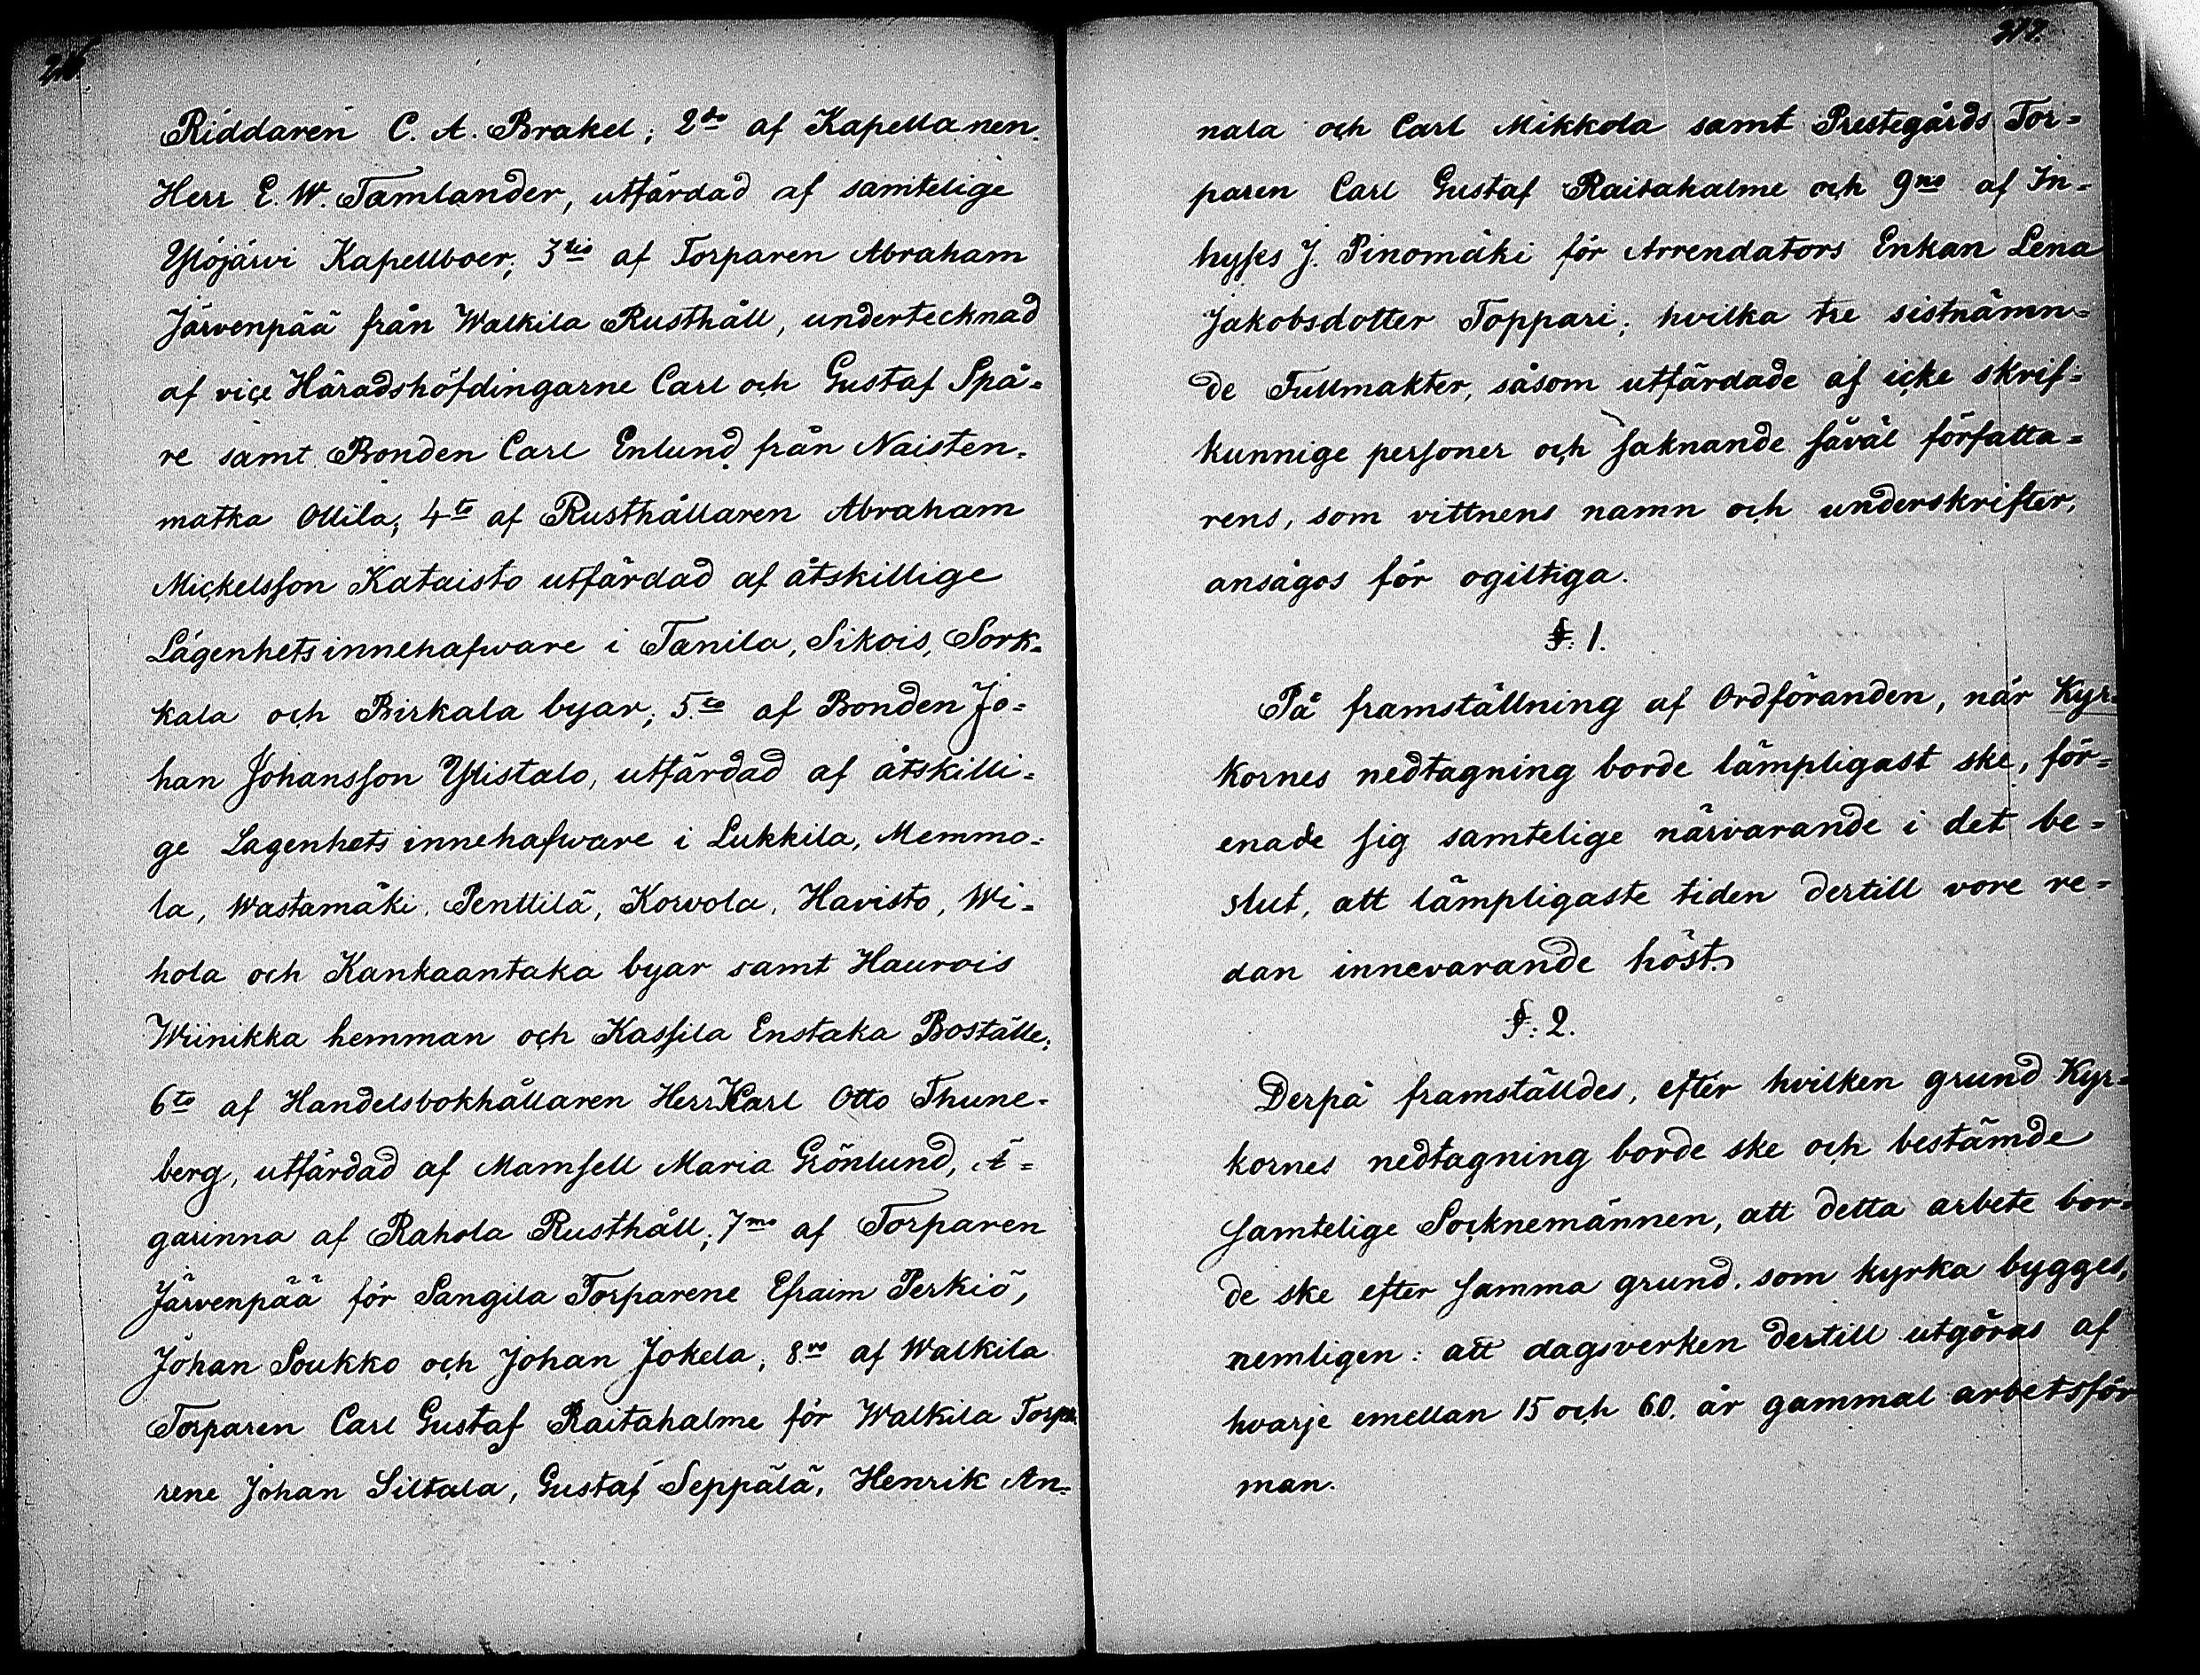 277.
Riddaren C. A. Brakel; 2do af Kapellanen
Herr E. W. Tamlander, utfärdad af samtelige
Ylöjärvi Kapellboer; 3tio af Torparen Abraham
Järvenpää från Walkila Rusthåll, undertecknad
af vice Häradshöfdingarne Carl och Gustaf Spå=
re samt Bonden Carl Enlund från Naisten=
matka Ollila; 4to af Rusthållaren Abraham
Mickelsson Kataisto utfärdad af åtskillige
Lägenhetsinnehafware i Tanila, Sikois, Sork=
kala och Birkala byar; 5to af Bonden Jo=
han Johansson Ylistalo, utfärdad af åtskilli=
ge Lagenhets innehafware i Lukkila, Memmo=
la, Wastamäki, Penttilä, Korvola, Havisto, Wi=
hola och Kankaantaka byar samt Haurois
Wiinikka hemman och Kassila Enstaka Boställe;
6to af Handelsbokhållaren Herr Karl Otto Thune=
berg, utfärdad af Mamsell Maria Grönlund, Ä=
garinna af Rahola Rusthåll; 7mo af Torparen
Järvenpää för Pangila Torparene Efraim Perkiö,
Johan Soukko och Johan Jokela; 8vo af Walkila
Torparen Carl Gustaf Raitahalme för Walkila Torpa
rene Johan Siltala, Gustaf Seppälä, Henrik An=
nala och Carl Mikkola samt Prestegårds Tor=
paren Carl Gustaf Raitahalme och 9no af In=
hyses J. Pinomäki för Arrendators Enkan Lena
Jakobsdotter Toppari; hvilka tre sistnämn=
de Fullmakter, såsom utfärdade af icke skrif=
kunnige personer och saknande såväl författa=
rens, som vittnens namn och underskrifter,
ansågos för ogiltiga.
§. 1.
På framställning af Ordföranden, när Kyr=
kornes nedtagning borde lämpligast ske, för=
enade sig samtelige närvarande i det be=
slut, att lämpligaste tiden dertill vore re=
dan innevarande höst.
§. 2.
Derpå framställdes, efter hvilken grund Kyr=
kornes nedtagning borde ske och bestämde
samtelige Socknemännen, att detta arbete bor=
de ske efter samma grund, som kyrka bygges,
nemligen: att dagsverken dertill utgöras af
hvarje emellan 15 och 60. år gammal arbetsför
man.